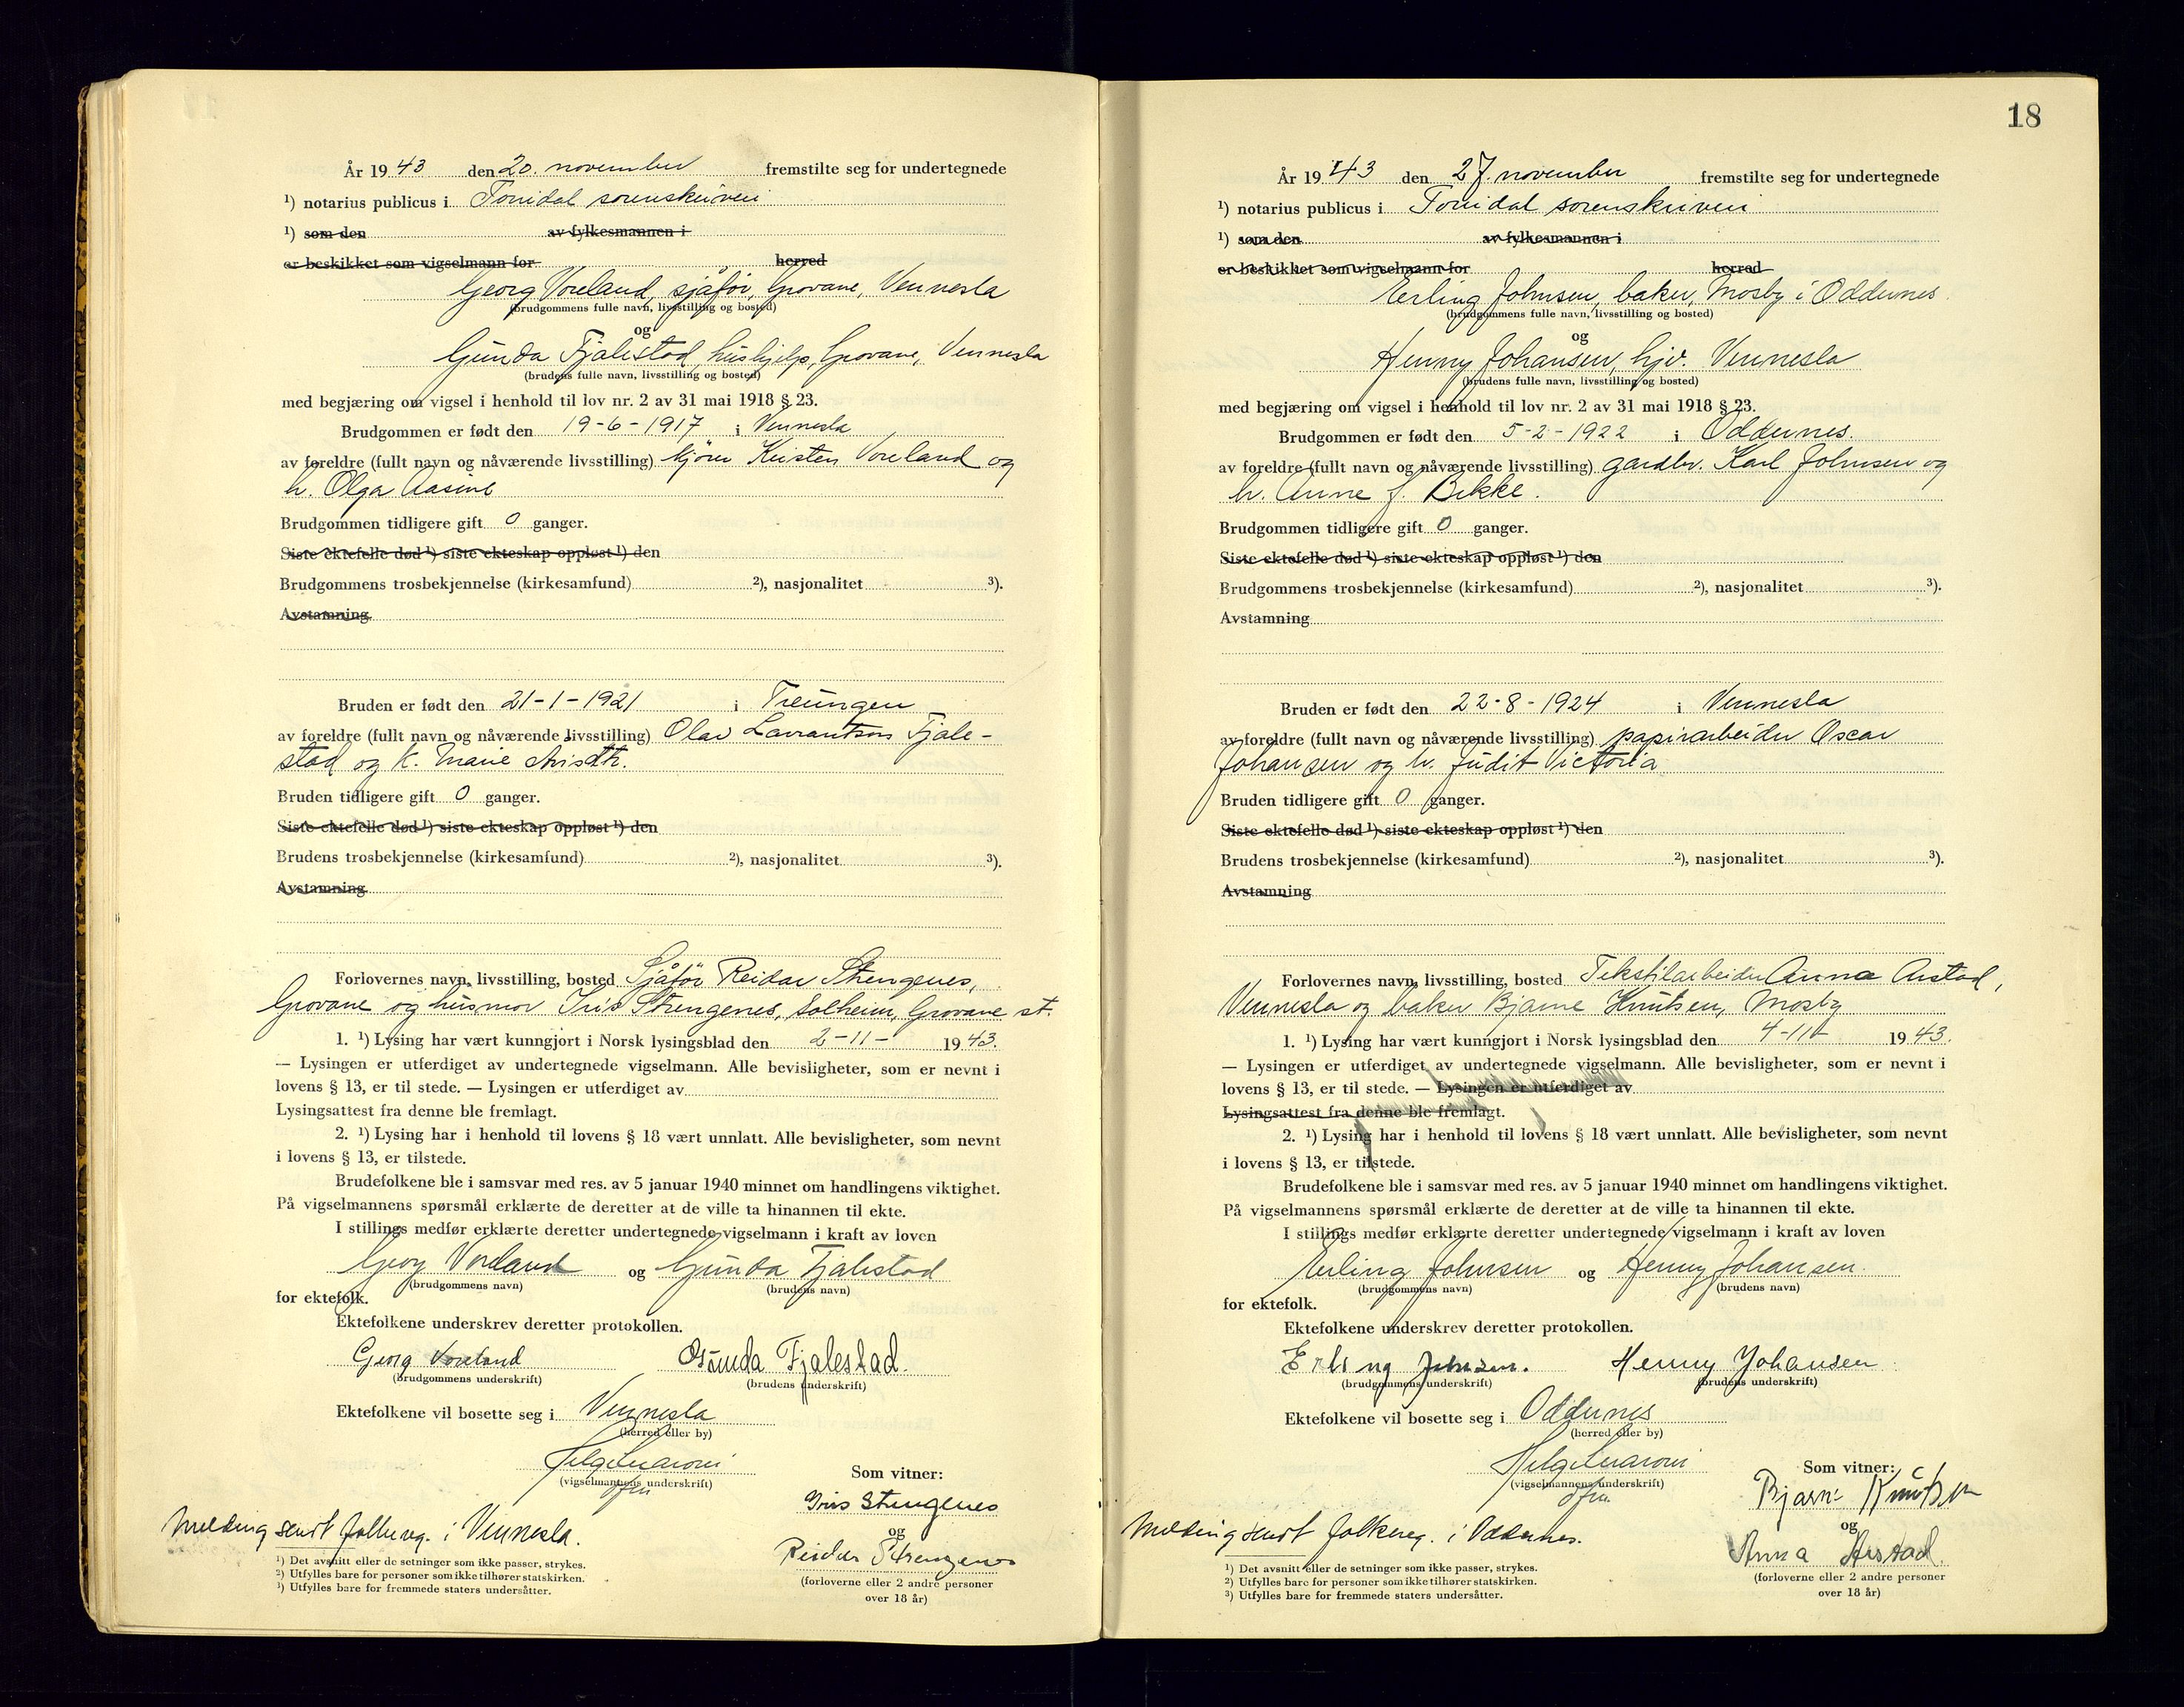 År 1943 den 20. november fremstilte seg for undertegnede
¹) notarius publicus i Torridal sorenskriveri
¹) som den av fylkesmannen i
er beskikket som vigselmann for herred
Georg Voreland, sjåfør, Grovane, Vennesla
(brudgommens fulle navn, livsstilling og bosted)
og
Gunda Fjalestad, hushjelp, Grovane, Vennesla
(brudens fulle navn, livsstilling og bosted)
med begjæring om vigsel i henhold til lov nr. 2 av 31 mai 1918 § 23.
Brudgommen er født den 19-6-1917 i Vennesla
av foreldre (fullt navn og nåværende livsstilling) kjører Kristen Voreland og
h. Olga Aasine
Brudgommen tidligere gift 0 ganger.
Siste ektefelle død ¹) siste ekteskap oppløst ¹) den
Brudgommens trosbekjennelse (kirkesamfund) ²), nasjonalitet ³).
Avstamning
Bruden er født den 21-1-1921 i Treungen
av foreldre (fullt navn og nåværende livsstilling) Olav Lavrantson Fjale-
stad og k. Marie
Bruden tidligere gift 0 ganger.
Siste ektefelle død ¹) siste ekteskap oppløst ¹) den
Brudens trosbekjennelse (kirkesamfund) ²), nasjonalitet ³).
Avstamning
Forlovernes navn, livsstilling, bosted Sjåfør Reidar Strengenes,
Grovane og husmor Iris Strengenes, Solheim, Grovane st.
1. ¹) Lysing har vært kunngjort i Norsk lysingsblad den 2-11- 1943.
— Lysingen er utferdiget av undertegnede vigselmann. Alle bevisligheter, som er nevnt i
lovens § 13, er til stede. — Lysingen er utferdiget av
Lysingsattest fra denne ble fremlagt.
2. ¹) Lysing har i henhold til lovens § 18 vært unnlatt. Alle bevisligheter, som nevnt
i lovens § 13, er tilstede.
Brudefolkene ble i samsvar med res. av 5 januar 1940 minnet om handlingens viktighet.
På vigselmannens spørsmål erklærte de deretter at de ville ta hinannen til ekte.
I stillings medfør erklærte deretter undertegnede vigselmann i kraft av loven
Georg Voreland og Gunda Fjalestad
(brudgommens navn) (brudens navn)
for ektefolk.
Ektefolkene underskrev deretter protokollen.
Georg Voreland Gunda Fjalestad.
(brudgommens underskrift) (brudens underskrift)
Ektefolkene vil bosette seg i Vennesla
(herred eller by)
(vigselmannens underskrift)
Som vitner:
Iris Strengenes
og
Reidar Strengenes
(forloverne eller 2 andre personer
over 18 år)
Melding sendt folkereg. i Vennesla.
¹) Det avsnitt eller de setninger som ikke passer, strykes.
²) Utfylles bare for personer som ikke tilhører statskirken.
³) Utfylles bare for fremmede staters undersåtter.
18
År 1943 den 27. november fremstilte seg for undertegnede
¹) notarius publicus i Torridal sorenskriveri
¹) som den av fylkesmannen i
er beskikket som vigselmann for herred
Erling Johnsen, baker, Mosby i Oddernes.
(brudgommens fulle navn, livsstilling og bosted)
og
Henny Johansen, hjv. Vennesla
(brudens fulle navn, livsstilling og bosted)
med begjæring om vigsel i henhold til lov nr. 2 av 31 mai 1918 § 23.
Brudgommen er født den 5-2-1922 i Oddernes.
av foreldre (fullt navn og nåværende livsstilling) gardbr. Karl Johnsen og
h. Anne f. Bekke.
Brudgommen tidligere gift 0 ganger.
Siste ektefelle død ¹) siste ekteskap oppløst ¹) den
Brudgommens trosbekjennelse (kirkesamfund) ²), nasjonalitet ³).
Avstamning
Bruden er født den 22-8-1924 i Vennesla
av foreldre (fullt navn og nåværende livsstilling) papirarbeider Oscar
Johansen og h. Judit Victoria
Bruden tidligere gift 0 ganger.
Siste ektefelle død ¹) siste ekteskap oppløst ¹) den
Brudens trosbekjennelse (kirkesamfund) ²), nasjonalitet ³).
Avstamning
Forlovernes navn, livsstilling, bosted Tekstilarbeider Anna Aistad,
Vennesla og baker Bjarne Knutsen, Mosby
1. ¹) Lysing har vært kunngjort i Norsk lysingsblad den 4-11- 1943.
— Lysingen er utferdiget av undertegnede vigselmann. Alle bevisligheter, som er nevnt i
lovens § 13, er til stede. — Lysingen er utferdiget av
Lysingsattest fra denne ble fremlagt.
2. ¹) Lysing har i henhold til lovens § 18 vært unnlatt. Alle bevisligheter, som nevnt
i lovens § 13, er tilstede.
Brudefolkene ble i samsvar med res. av 5 januar 1940 minnet om handlingens viktighet.
På vigselmannens spørsmål erklærte de deretter at de ville ta hinannen til ekte.
I stillings medfør erklærte deretter undertegnede vigselmann i kraft av loven
Erling Johnsen og Henny Johansen.
(brudgommens navn) (brudens navn)
for ektefolk.
Ektefolkene underskrev deretter protokollen.
Erling Johnsen. Henny Johansen
(brudgommens underskrift) (brudens underskrift)
Ektefolkene vil bosette seg i Oddernes
(herred eller by)
(vigselmannens underskrift)
Som vitner:
Bjarne Knutsen
og
Anna Aistad.
(forloverne eller 2 andre personer
over 18 år)
Melding sendt folkereg. i Oddernes.
¹) Det avsnitt eller de setninger som ikke passer, strykes.
²) Utfylles bare for personer som ikke tilhører statskirken.
³) Utfylles bare for fremmede staters undersåtter.